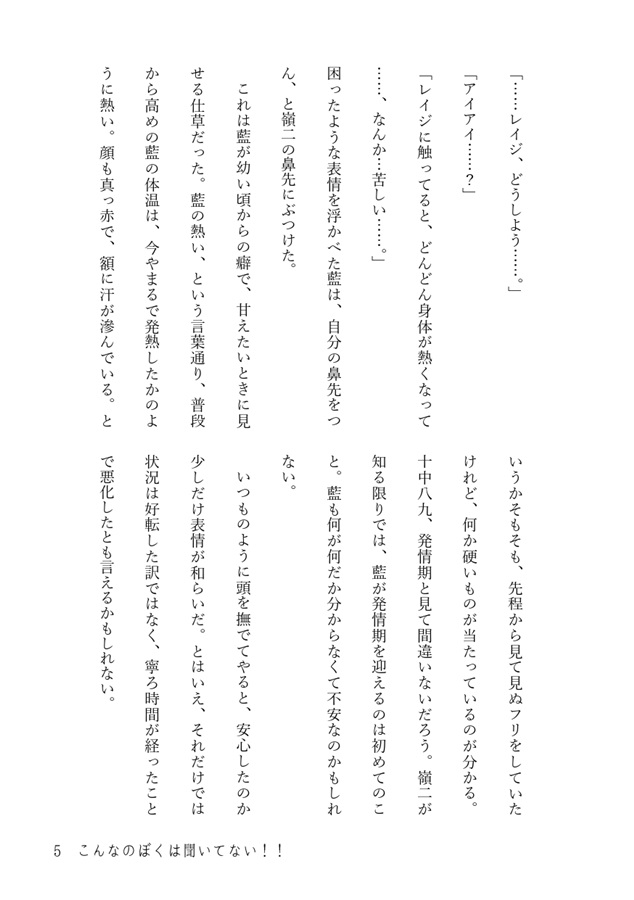 「……レイジ、どうしよう……。」
「アイアイ……？」
「レイジに触ってると、どんどん身体が熱くなって
……、なんか…苦しい……。」
困ったような表情を浮かべた藍は、自分の鼻先をつ
ん、と嶺二の鼻先にぶつけた。
　これは藍が幼い頃からの癖で、甘えたいときに見
せる仕草だった。藍の熱い、という言葉通り、普段
から高めの藍の体温は、今やまるで発熱したかのよ
うに熱い。顔も真っ赤で、額に汗が滲んでいる。と
いうかそもそも、先程から見て見ぬフリをしていた
けれど、何か硬いものが当たっているのが分かる。
十中八九、発情期と見て間違いないだろう。嶺二が
知る限りでは、藍が発情期を迎えるのは初めてのこ
と。藍も何が何だか分からなくて不安なのかもしれ
ない。
　いつものように頭を撫でてやると、安心したのか
少しだけ表情が和らいだ。とはいえ、それだけでは
状況は好転した訳ではなく、寧ろ時間が経ったこと
で悪化したとも言えるかもしれない。
5　こんなのぼくは聞いてない！！